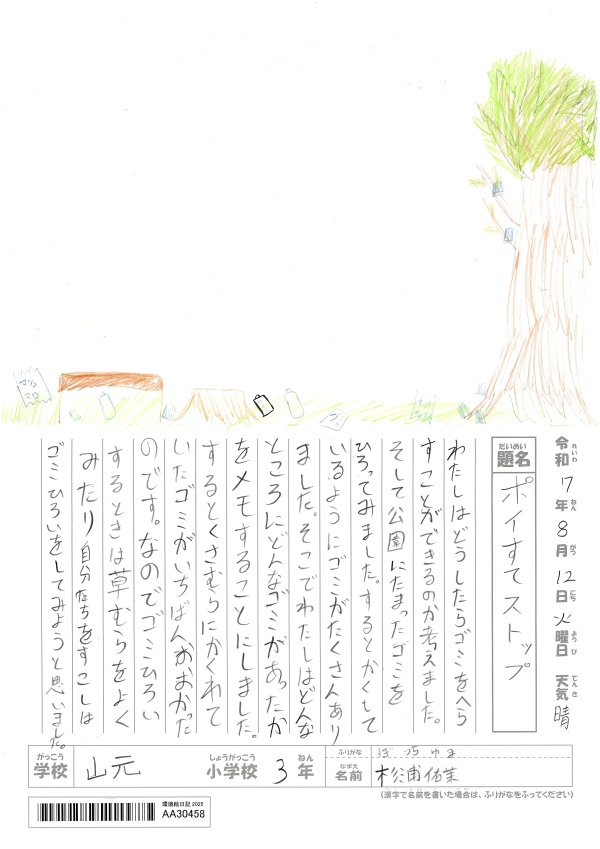 マシュ
マロ
令和7年8月12日火曜日 天気 晴
れいわ ねん がつ にち ようび てんき
だいめい
題名 ポイすてストップ
わたしはどうしたらゴミをへら
すことができるのか考えました。
そして公園にたまったゴミを
ひろってみました。するとかくして
いるようにゴミがたくさんあり
ました。そこでわたしはどんな
ところにどんなゴミがあったか
をメモすることにしました。
するとくさむらにかくれて
いたゴミがいちばんおおかった
のです。なのでゴミひろい
するときは草むらをよく
みたり自分たちをすこしは
ゴミひろいをしてみようと思いました。
がっこう しょうがっこう ねん
学校 山元 小学校 3年
ふりがな
なまえ
名前 杉浦佑茉
(漢字で名前を書いた場合は、ふりがなをふってください)
環境絵日記 2025
AA30458